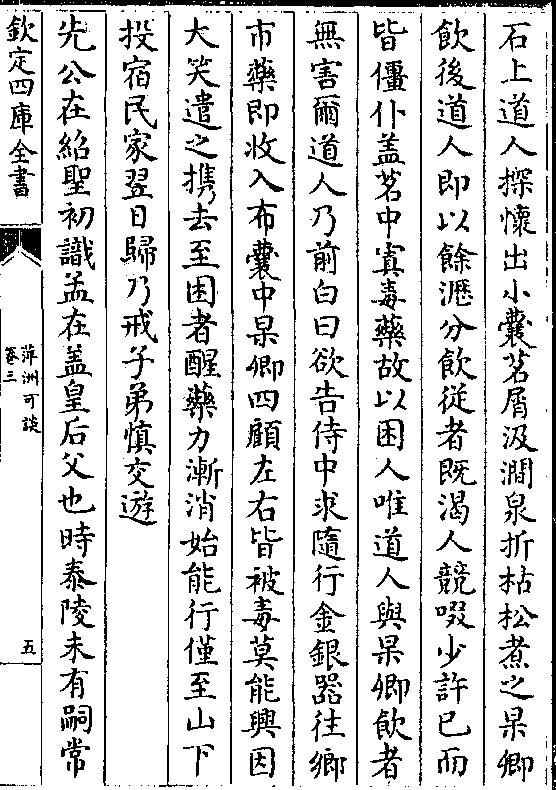 石上道人探懷出小囊茗屑汲澗泉折枯松煮之杲卿
飲後道人即以餘瀝分飲從者既渴人競啜少許已而
皆僵仆蓋茗中寘毒藥故以困人唯道人與杲卿飲者
無害爾道人乃前白曰欲告侍中求隨行金銀器往鄉
市藥即收入布囊中杲卿四顧左右皆被毒莫能興因
大笑遣之携去至困者醒藥力漸消始能行僅至山下
投宿民家翌日歸乃戒子弟慎交遊
先公在紹聖初識孟在孟皇后父也時泰陵未有嗣常
欽定四庫全書
萍洲可談
卷三
五